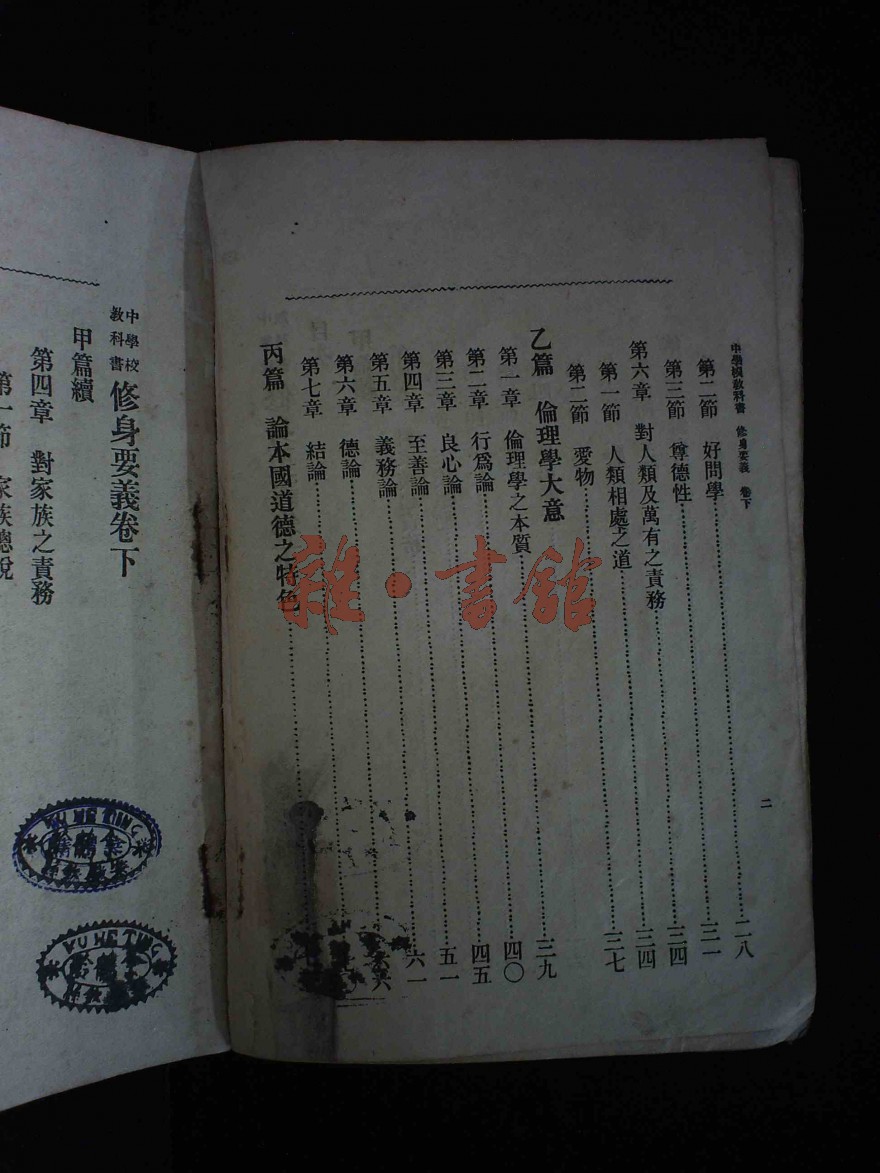 中學校教科書 修身要義 卷下
二
第二節 好問學……二八
第三節 尊德性……三一
第六章 對人類及萬有之責務……三四
第一節 人類相處之道……三四
第二節 愛物……三七
乙篇 倫理學大意……三九
第一章 倫理學之本質……四〇
第二章 行爲論……四五
第三章 良心論……五一
第四章 至善論……六一
第五章 義務論……
第六章 德論……
第七章 結論……
丙篇 論本國道德之特色……
中學校
教科書
修身要義卷下
甲篇續
第四章 對家族之責務
第一節 家族總說
WU HE TING
WU HE TING
雜·書館